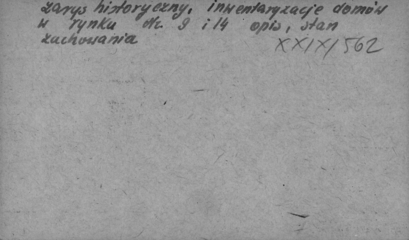 zarys historyczny, inwentaryzacje domów
w rynku Nr. 9 i 14 opis, stan
zachowania
XXIX/562